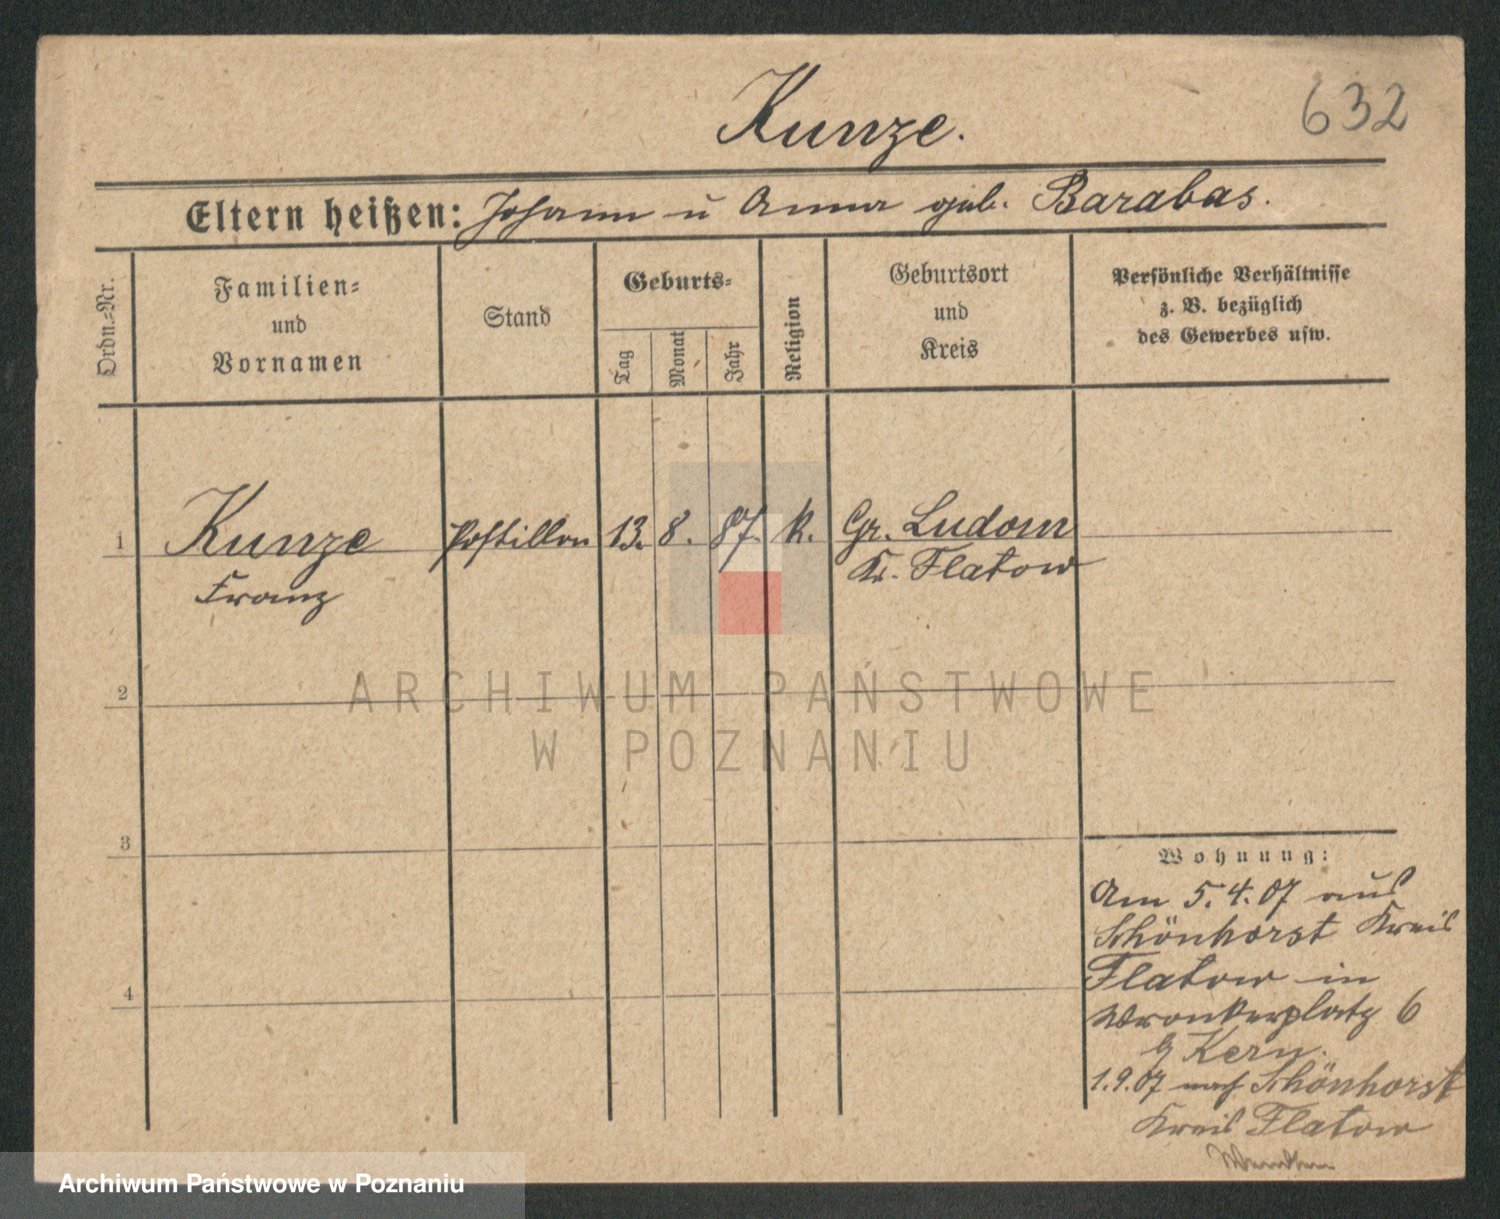 Kunze.
632
Eltern heißen: Johann u Anna geb. Barabas.
Ordn.-Nr.
Familien-
und
Vornamen
Stand
Geburts-
Tag
Monat
Jahr
Religion
Geburtsort
und
Kreis
Persönliche Verhältnisse
z. B. bezüglich
des Gewerbes usw.
1 Kunze Postillon 13. 8. 87. k. Gr. Ludom
Franz Kr. Flatow
2
ARCHIWUM PAŃSTWOWE
W POZNANIU
3
Wohnung:
Am 5.4.07 aus
Schönhorst Kreis
Flatow in
4
Wronkerplatz 6
b Kern.
1.9.07 nach Schönhorst
Kreis Flatow
Archiwum Państwowe w Poznaniu